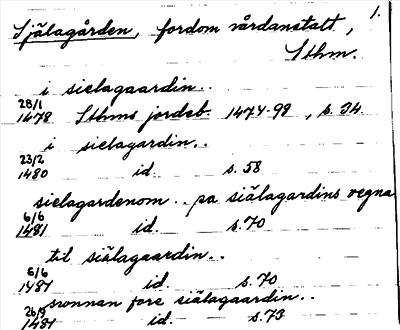 Själagården, fordom vårdanstalt, 1.
Sthm.
i sielagaardin..
28/1
1478 Sthms jordeb. 1474-98, s. 34
i sielagardin..
23/2
1480 id. s. 58
sielagardenom.. pa siälagardins vegna
6/6
1481 id. s. 70
til siälagaardin..
6/6
1481 id. s. 70
sunnan fore siälagaardin..
26/9
1481 id. s. 73